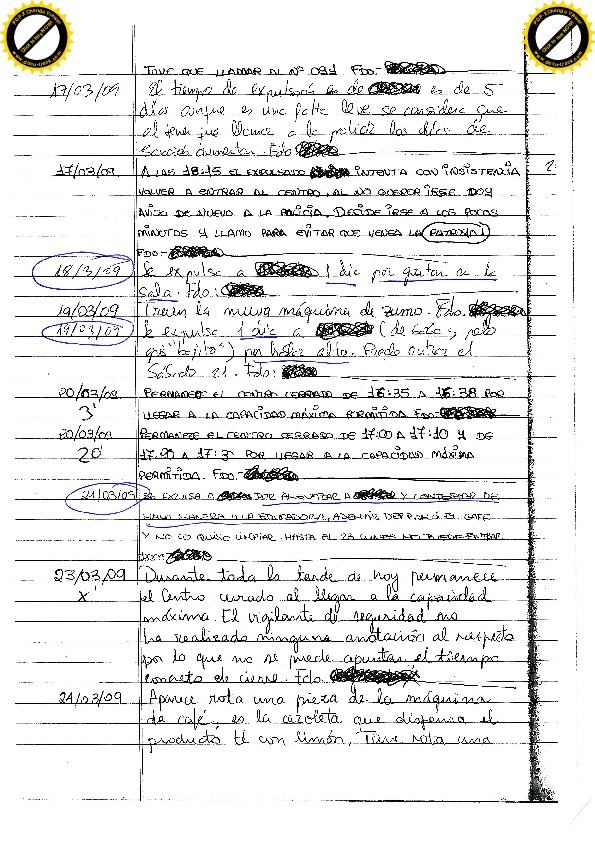 TUVE QUE LLAMAR AL Nº 091 FDO.-
17/03/09 El tiempo de expulsión de es de 5
días aunque es una falta leve se considera que
al tener que llamar a la policía los días de
sanción aumentan. Fdo
17/03/09 A LAS 18:45 EL EXPULSADO INTENTA CON INSISTENCIA
VOLVER A ENTRAR AL CENTRO, AL NO QUERER IRSE DOY
AVISO DE NUEVO A LA POLICIA, DECIDE IRSE A LOS POCOS
MINUTOS Y LLAMO PARA EVITAR QUE VENGA LA PATRULLA
FDO.-
18/3/09 Se expulsa a 1 día por gritar en la
sala. Fdo:
19/03/09 Traen la nueva máquina de zumo. Fdo.
19/03/09 Se expulsa 1 día a (de y pelo
"bajito") por hablar alto. Puede entrar el
Sábado 21. Fdo:
20/03/09 PERMANECE EL CENTRO CERRADO DE 16:35 A 16:38 POR
3' LLEGAR A LA CAPACIDAD MÁXIMA PERMITIDA FDO-
20/03/09 PERMANECE EL CENTRO CERRADO DE 17:00 A 17:10 Y DE
20' 17:20 A 17:30 POR LLEGAR A LA CAPACIDAD MÁXIMA
PERMITIDA. FDO.-
21/03/09 SE EXPULSA A POR A Y CONTESTAR DE
MALA MANERA A LA EDUCADORA, ADEMÁS EL CAFE
Y NO LO QUISO LIMPIAR. HASTA EL 23 LUNES NO PUEDE ENTRAR
23/03/09 Durante toda la tarde de hoy permanece
X' el Centro cerrado al llegar a la capacidad
máxima. El vigilante de seguridad no
ha realizado ninguna anotación al respecto
por lo que no se puede apuntar el tiempo
concreto de cierre. Fdo.
24/03/09 Aparece rota una pieza de la máquina
de café, es la cazoleta que dispensa el
producto té con limón, Tiene rota una